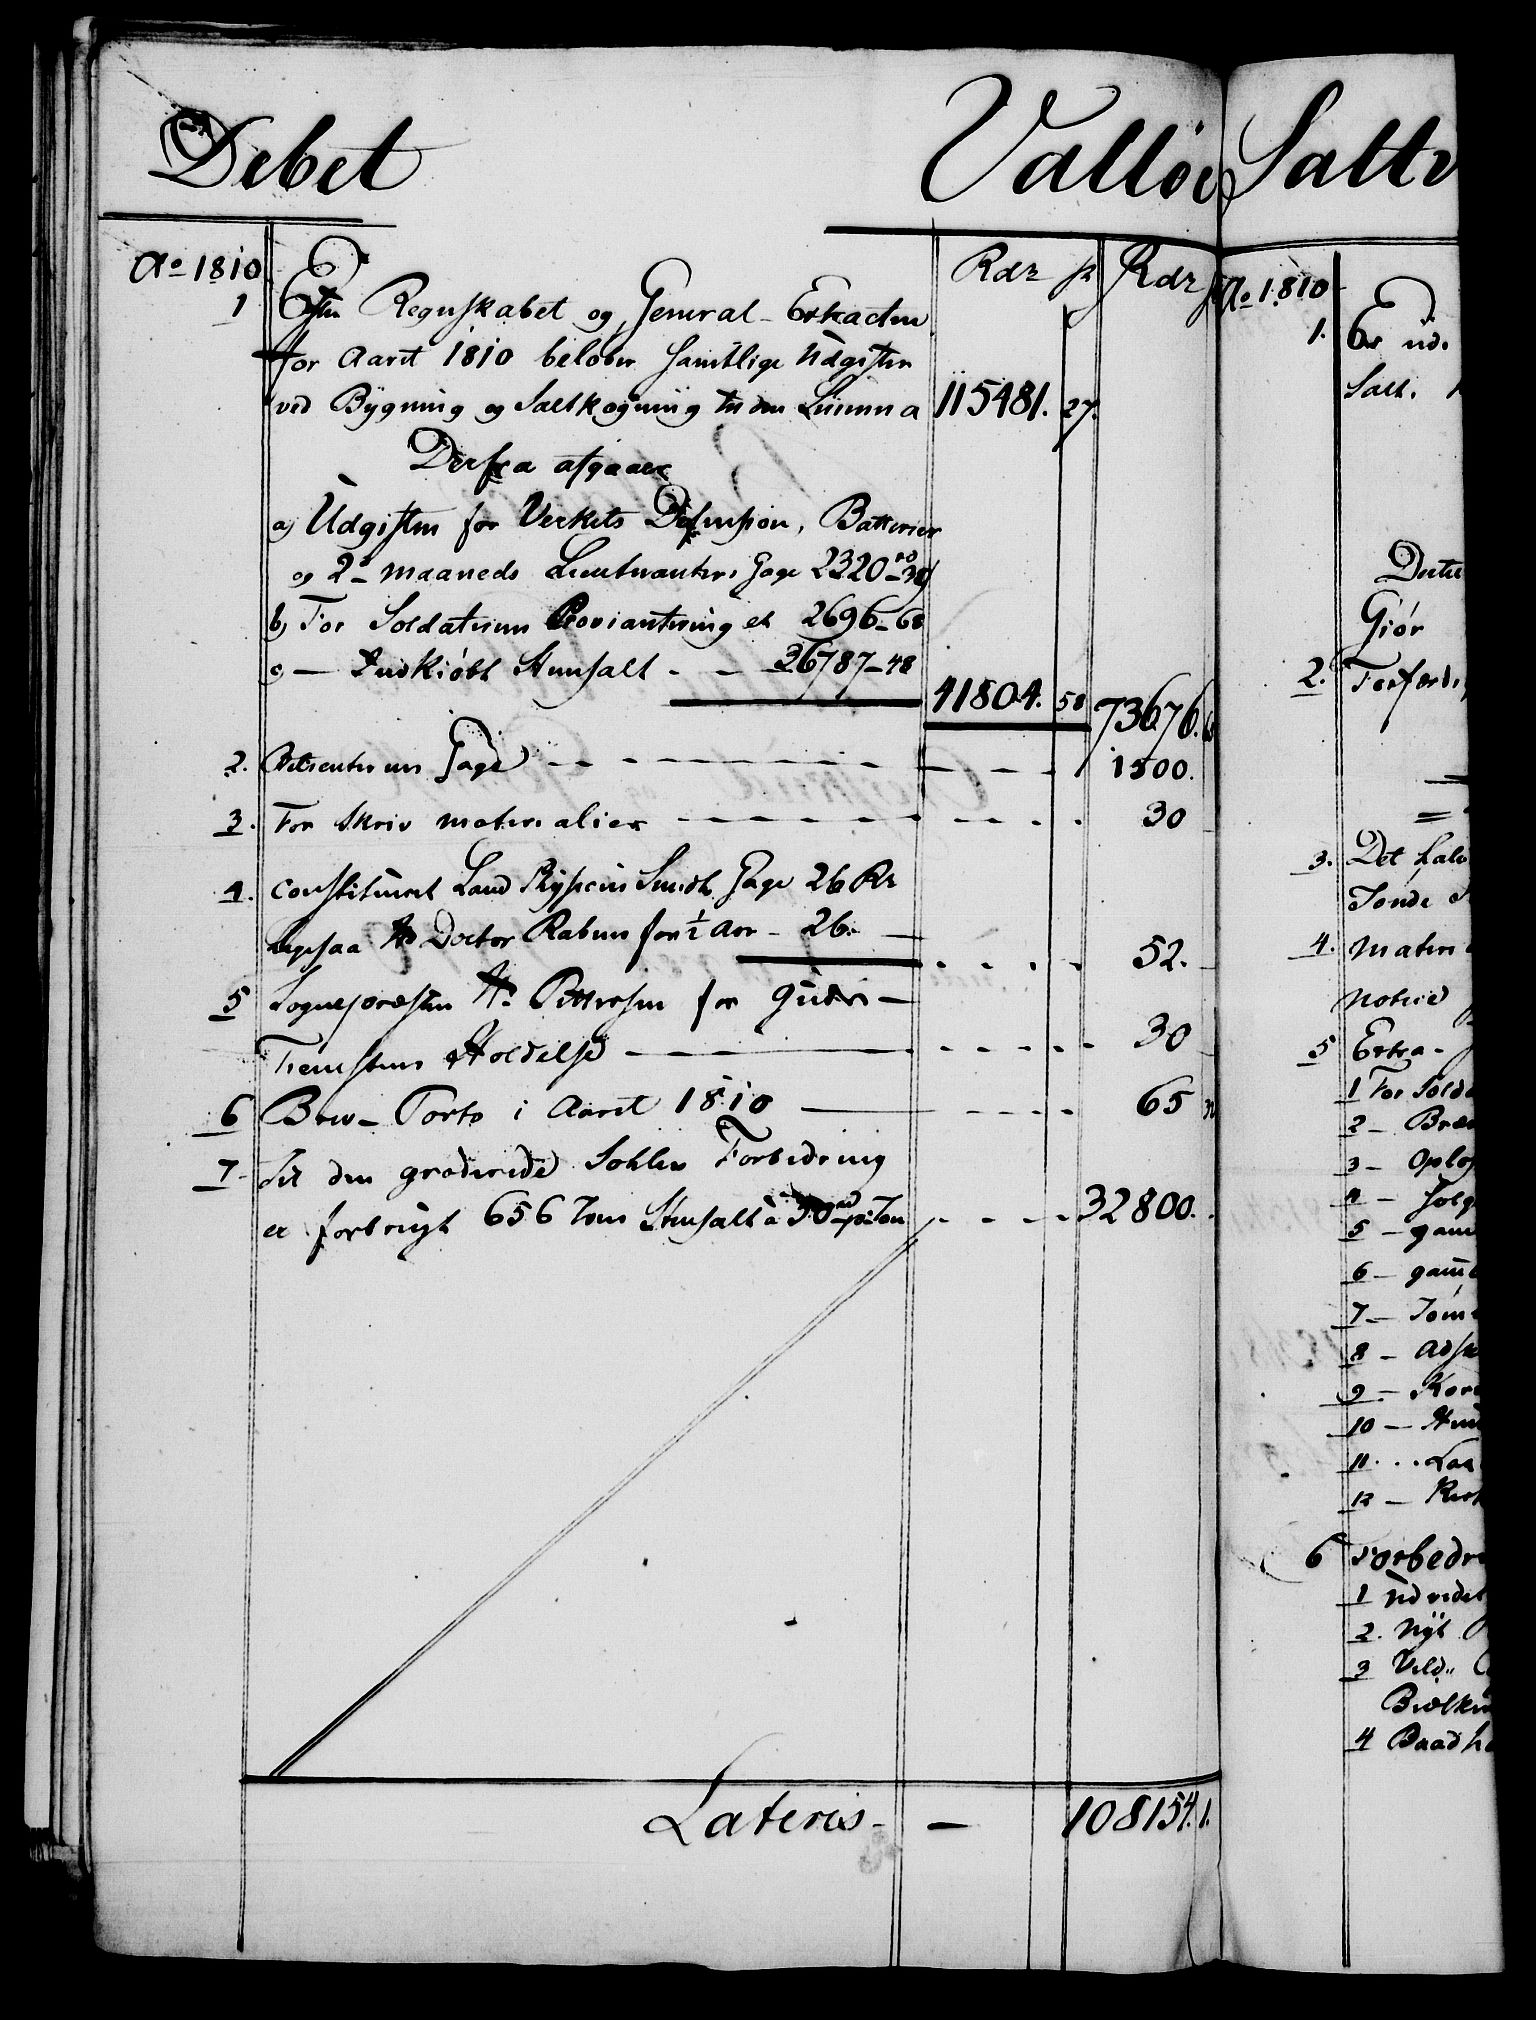 Debet
Valløe Saltv
Ao 1810
Rdr ß Rdr
1 Efter Regnskabet og General-Extracten
for Aaret 1810 beløber samtlige Udgifter
ved Bygning og Saltkogning til den Summa 115481. 27.
Derfra afgaaer
a) Udgiften for Verkets Defension, Batterier
og 2 maaneds Lieutnantens Gage 2320 rd - 38
b) For Soldaternes Proviantering et 2696 - 68
c) — Indkiøbt Steensalt - - 36787 - 48
41804. 58 73676.
2. Betienternes Gage 1500.
3. For Skriv materialier 30
4. Constitueret Land Physicus Smidt Gage 26 Rdr
ligesaa Hr Doctor Raben for ½ Aar - 26. 52.
5 Sognepræsten Hr Petersen for Guds-
Tienestens Holdelse 30
6 Brev-Porto i Aaret 1810 65
7 Til den graderede Sohles Forbedring
er forbrugt 656 Tønr Steensalt à 50 rd pr Tøn 32800.
Lateris - — 108154. 1.
Ao 1810
1. Er ud
Salt.
Giør
2. Forfærdi
3. Det halv
Tønde
4. Mater
notered
5 Extra-
1 For Solda
2 — Bræ
3 — Oplo
4 — Solg
5 — gam
6 — gaml
7 — Tøm
8 — Adsk
9 — Kor
10 —
11 . . .
12 —
6 Forbedr
1 Udvidet
2. Nyt
3 Ved.
Bielke
4 Baadh